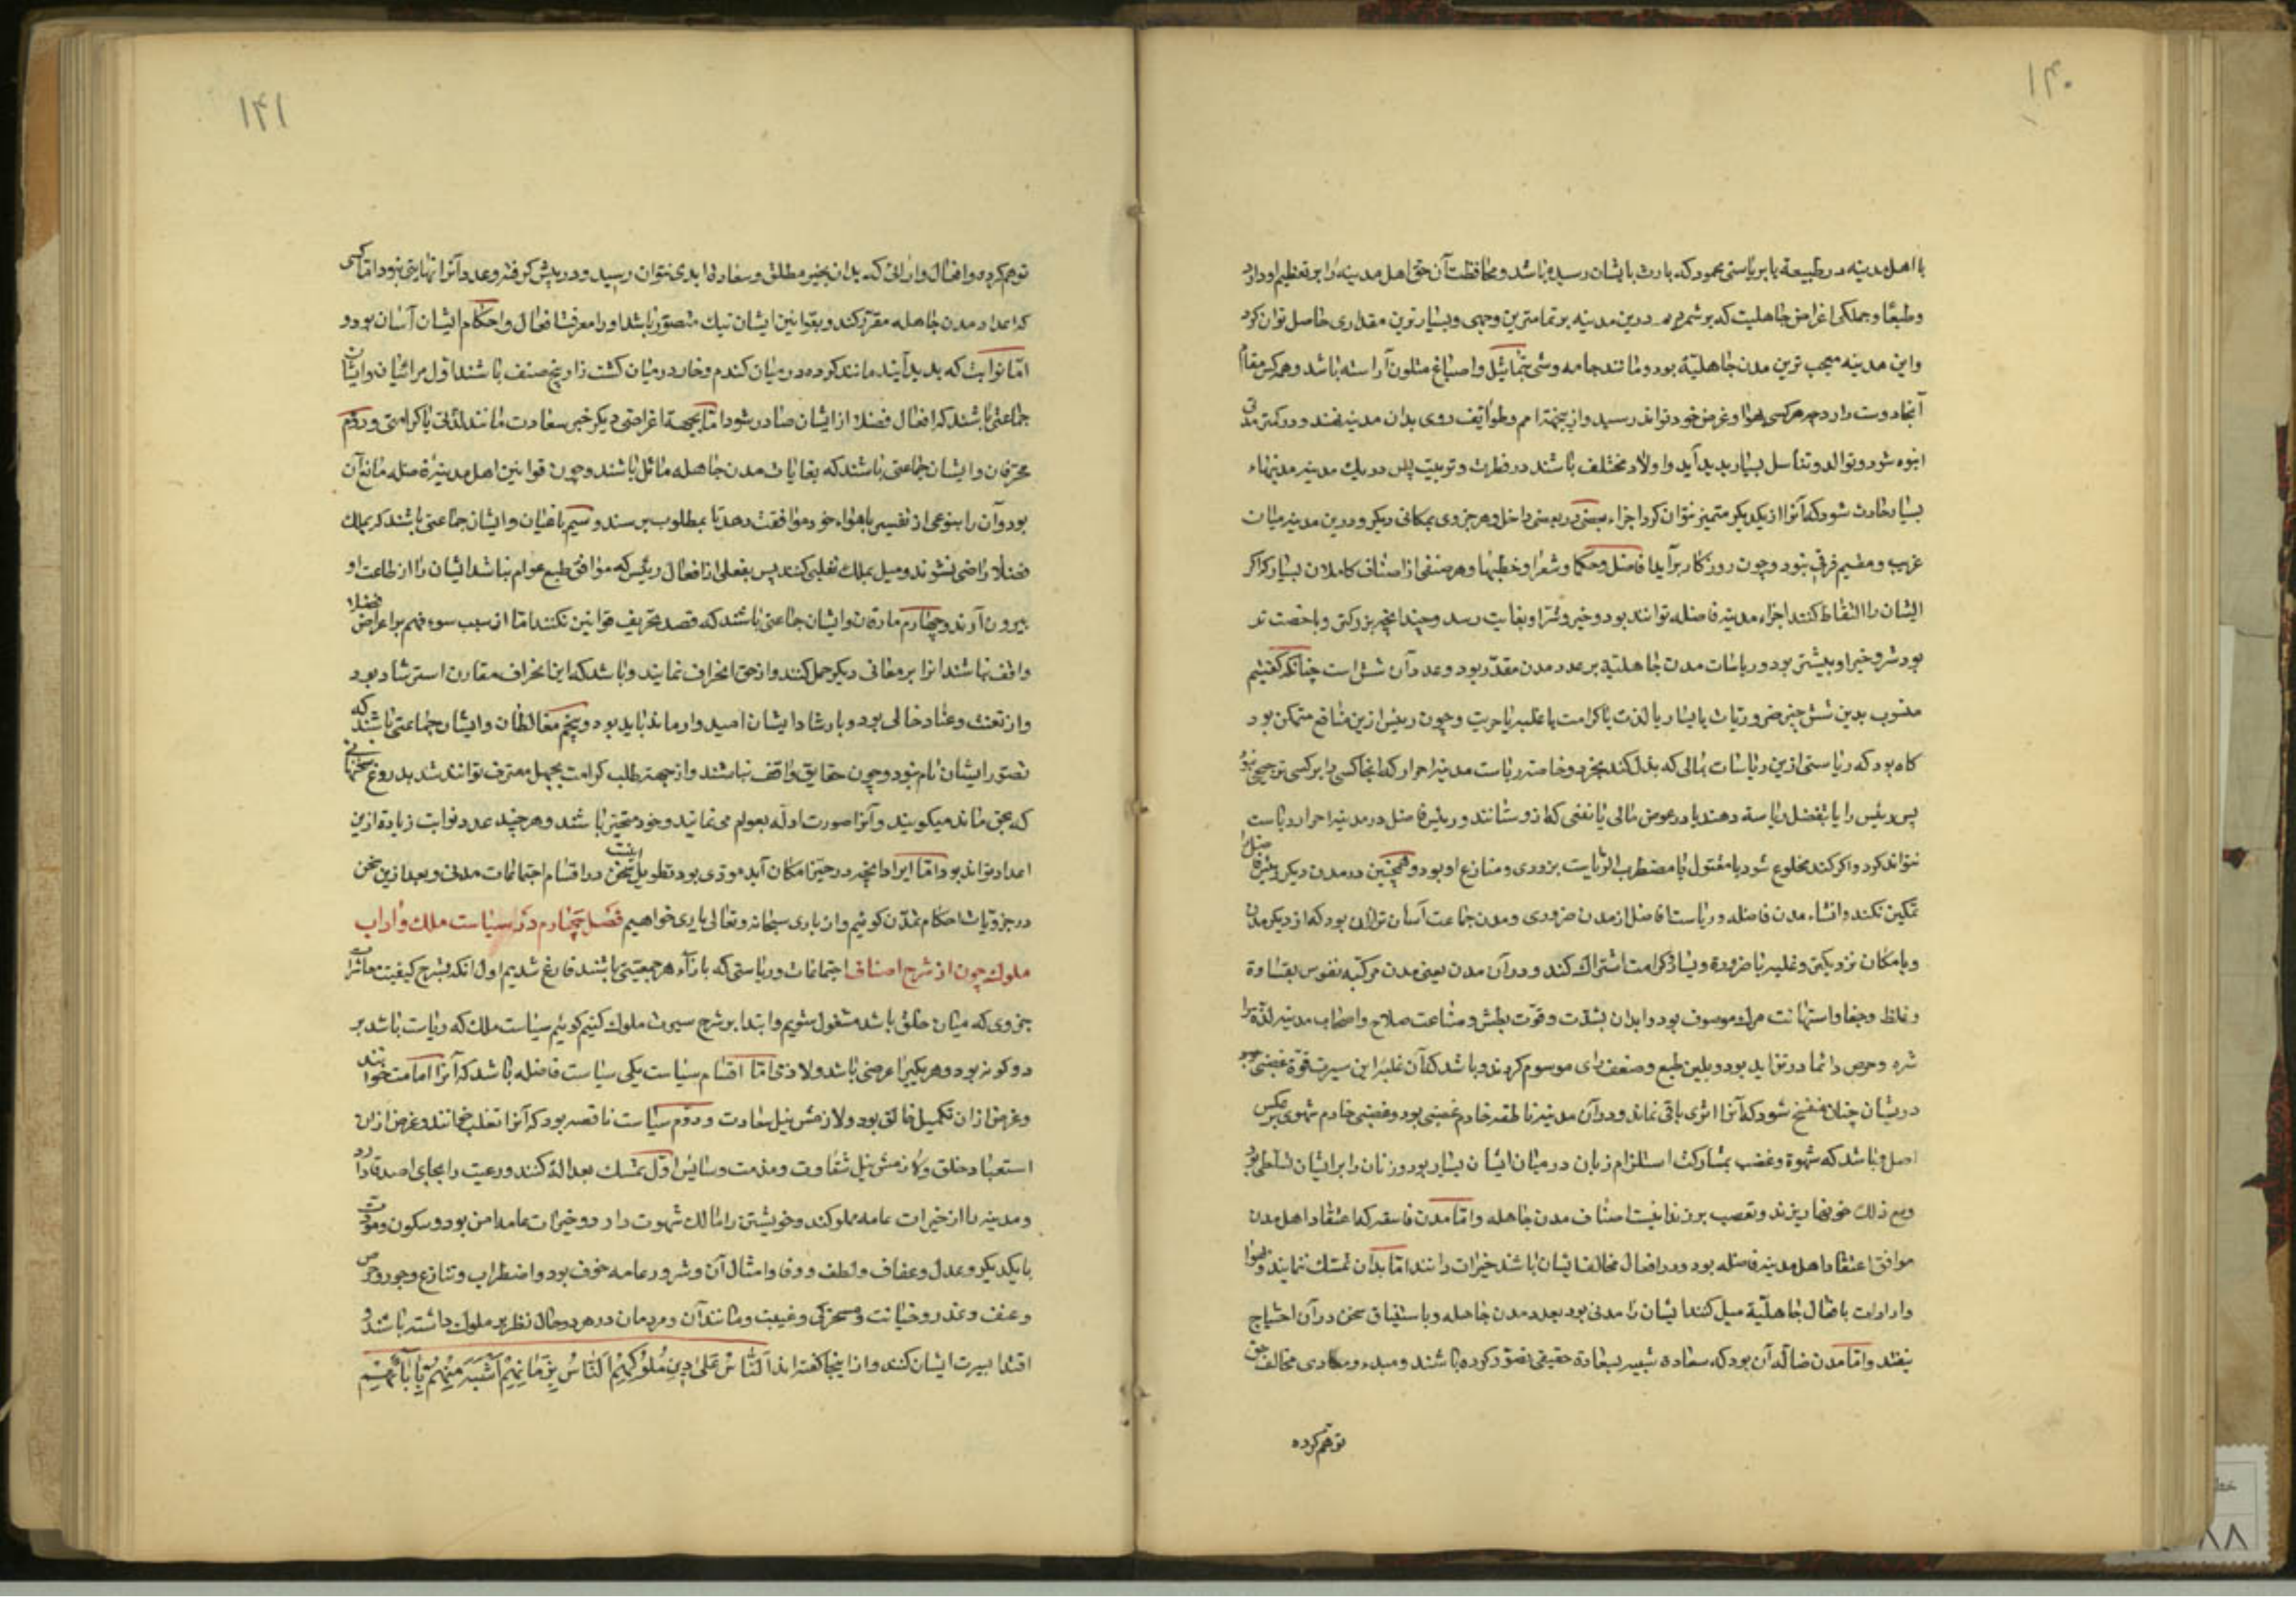 ۱۴۰
با اهل مدینه در طبیعة یا بریاستی محمود که بارث بایشان رسیده باشد و محافظت آن حق اهل مدینه را بر تعظیم او دارد
وطبعًا وجملکی اغراض جاهلیت که برشمردیم درین مدینه بر تمامترین وجهی وبسیارترین مقداری حاصل توان کرد
واین مدینه معجب ترین مدن جاهلیّة بود ومانند جامه وشی بتماثیل واصباغ متلون آراسته باشد وهرکس مقام
آنجا دوست دارد چه هرکسی بهوا وغرض خود تواند رسید وازین جهة امم وطوایف روی بدان مدینه نهند ودر کمتر مدتی
انبوه شود وتوالد وتناسل بسیار پدید آید واولاد مختلف باشند در فطرت وتربیت پس در یک مدینه مدینهاء
بسیار حادث شود که آنرا از یکدیکر متمیز نتوان کرد اجزاء بعضی در بعضی داخل وهر جزوی بمکانی دیکر ودرین مدینه میان
غریب ومقیم فرقی نبود وچون روزکار برآید افاضل وحکما وشعرا وخطبها وهر صنفی از اصناف کاملان بسیار که اکر
ایشان را التقاط کنند اجزاء مدینه فاضله توانند بود وخیر وشر او بغایت رسد وچندانچه بزرکتر وباخصب تر
بود شر وخیر او بیشتر بود وریاسات مدن جاهلیّة بر عدد مدن مقدّر بود وعدد آن شش است چنانکه کفتیم
منسوب بدین شش چیز ضروریات یا یسار یا لذت یا کرامت یا غلبه یا حریت وچون رئیس ازین منافع متمکن بود
کاه بود که ریاستی ازین ریاسات بمالی که بذل کند بخرد وخاصه ریاست مدینه احرار که انجا کسی را بر کسی ترجیح نبود
پس رئیس را یا بتفضل ریاسة دهند یا در عوض مالی یا نفعی که از و ستانند ورئیس فاضل در مدینه احرار ریاست
نتواند کرد واکر کند مخلوع شود یا مقتول یا مضطرب الریاست بزودی ومنازع او بود وهمچنین در مدن دیکر رئیس فاضل را
تمکین نکنند وانشاء مدن فاضله وریاست افاضل از مدن ضروری ومدن جماعت آسان تر از آن بود که از دیکر مدن
وبامکان نزدیکتر وغلبه با ضرورة ویسار وکرامت اشتراک کند ودر آن مدن یعنی مدن مرکبه نفوس بقساوة
وغلظ وجفا واستهانت مرک موسوف بود وابدان بشدّت وقوّت بطش وصناعت صلاح واصحاب مدینه لذّة را
شره وحرص دائما در تزاید بود وبلین طبع وضعف رای موسوم کردند وباشد که از غلبهٔ این سیرت قوّة غضبی
دریشان چنان منفسخ شود که آنرا اثری باقی نماند ودر آن مدینه ناطقه خادم غضبی بود وغضبی خادم شهوی بر عکس
اصل وباشد که شهوة وغضب بمشارکت استلزام زبان در میان ایشان بسیار بود وزنان را بر ایشان تسلطی بود
ومع ذلک خونها ریزند وتعصب برزند اینست اصناف مدن جاهله واما مدن فاسقه که اعتقاد اهل مدن
موافق اعتقاد اهل مدینه فاضله بود ودر افعال مخالف ایشان باشند خیرات دانند اما بدان تمسک ننمایند وبهوا
وارادات بافعال جاهلیّة میل کنند ایشان را مدنی بود بعدد مدن جاهله وباستیناف سخن در آن احتیاج
نیفتد واما مدن ضالّه آن بود که سعادة شبیه بسعادة حقیقی تصوّر کرده باشند ومبدء ومعادی مخالف حق
توهّم کرده
۱۴۱
توهم کرده وافعال وارائی که بدان بخیر مطلق وسعادت ابدی نتوان رسید ودر پیش کرفته وعدد آنرا نهایتی نبود اما کسی
که اعداد مدن جاهله مقرر کند وبقوانین ایشان نیک متصوّر باشد اورا معرفت افعال واحکام ایشان آسان بود و
امّا نوابت که پدید آیند مانند کرده در میان کندم وخار در میان کشت زار پنج صنف باشند اول مرائیان وایشان
جماعتی باشند که افعال فضلا از ایشان صادر شود امّا بجهة اغراضی دیکر خیر سعادت مانند لذّتی یا کرامتی ودوّم
محرّفان وایشان جماعتی باشند که بغایات مدن جاهله مائل باشند وچون قوانین اهل مدینهٔ فاضله مانع آن
بود آن را بنوعی از تفسیر باهواء خود موافقت دهند تا بمطلوب برسند وسیم باغیان وایشان جماعتی باشند که بملک
فضلا راضی نشوند ومیل بملک تغلبی کنند پس بفعلی از افعال رئیس که موافق طبع عوام نباشد ایشان را از طاعت او
بیرون آرند وچهارم مارقان وایشان جماعتی باشند که قصد تحریف قوانین نکنند امّا از سبب سوء فهم بر اغراض فضلا
واقف نباشند انرا بر معانی دیکر حمل کنند واز حق انحراف نمایند وباشد که این انحراف مقارن استرشاد بود
واز تعنت وعناد خالی بود وبارشاد ایشان امیدوار ماند باید بود وپنجم مغالطان وایشان جماعتی باشند که
تصوّر ایشان تام نبود وچون حقایق واقف نباشند واز جهة طلب کرامت بجهل معترف نتوانند شد بدروغ سخنهائی
که بحق ماند میکویند وآنرا صورت ادلّه بعوام می نمایند وخود متحیّر باشند وهرچند عدد نوابت زیادة ازین
اعداد تواند بود اما ایراد انچه در حیّز امکان آید مودّی بود بتطویل اینست سخن در اقسام اجتماعات مدنی وبعد ازین سخن
در جزویات احکام تمدّن کوئیم واز باری سبحانه وتعالی یاری خواهیم فصل چهارم در سیاست ملک وآداب
ملوک چون از شرح اصناف اجتماعات وریاستی که بازاء هر جمعیّتی باشند فارغ شدیم اول انکه بشرح کیفیت معاشرات
جزوی که میان خلق باشد مشغول شویم وابتدا بر شرح سیرت ملوک کنیم کوئیم سیاست ملک که ریاست باشد بر
دو کونه بود وهر یکیرا غرضی باشد ولازمی امّا اقسام سیاست یکی سیاست فاضله باشد که آنرا امامت خوانند
وغرض ازان تکمیل خالق بود ولازمش نیل سعادت ودوّم سیاست ناقصه بود که آنرا تغلب خوانند وغرض ازان
استعباد خلق ولازمش نیل شقاوت ومذمت وسایس اوّل تمسّک بعدالة کنند ورعیت را بجای اصدقا دارد
ومدینه را از خیرات عامه مملو کند وخویشتن را مالک شهوت دارد وخیرات عامه امن بود وسکون ومودّت
با یکدیکر وعدل وعفاف ولطف ووفا وامثال آن وشرور عامه خوف بود واضطراب وتنازع وجور وحرص
وعنف وغدر وخیانت ومسخرکی وغیبت ومانند آن ومردمان در هر دو حال نظر بر ملوک داشته باشند و
اقتدا بسیرت ایشان کنند واز اینجا کفته اند اَلنّاسُ عَلی دینِ مُلُوکِهِمْ اَلنّاسُ بِزَمانِهِمْ اَشْبَهُ مِنْهُمْ بِآبائِهِمْ